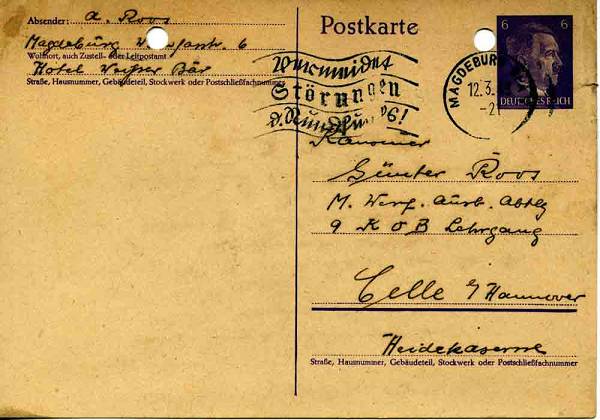 Absender: A. Roos
Magdeburg 6
Wohnort, auch Zustell- oder Leitpostamt
Hotel Weißer Bär
Straße, Hausnummer, Gebäudeteil, Stockwerk oder Postschließfachnummer
Postkarte
6 6
DEUTSCHES REICH
MAGDEBURG
12.3.
-2
Vermeidet
Störungen
d. Rundfunks!
Kanonier
Günter Roos
M. Werf. Ausb. Abtlg
9 K O B Lehrgang
Celle / Hannover
Heidekaserne
Straße, Hausnummer, Gebäudeteil, Stockwerk oder Postschließfachnummer